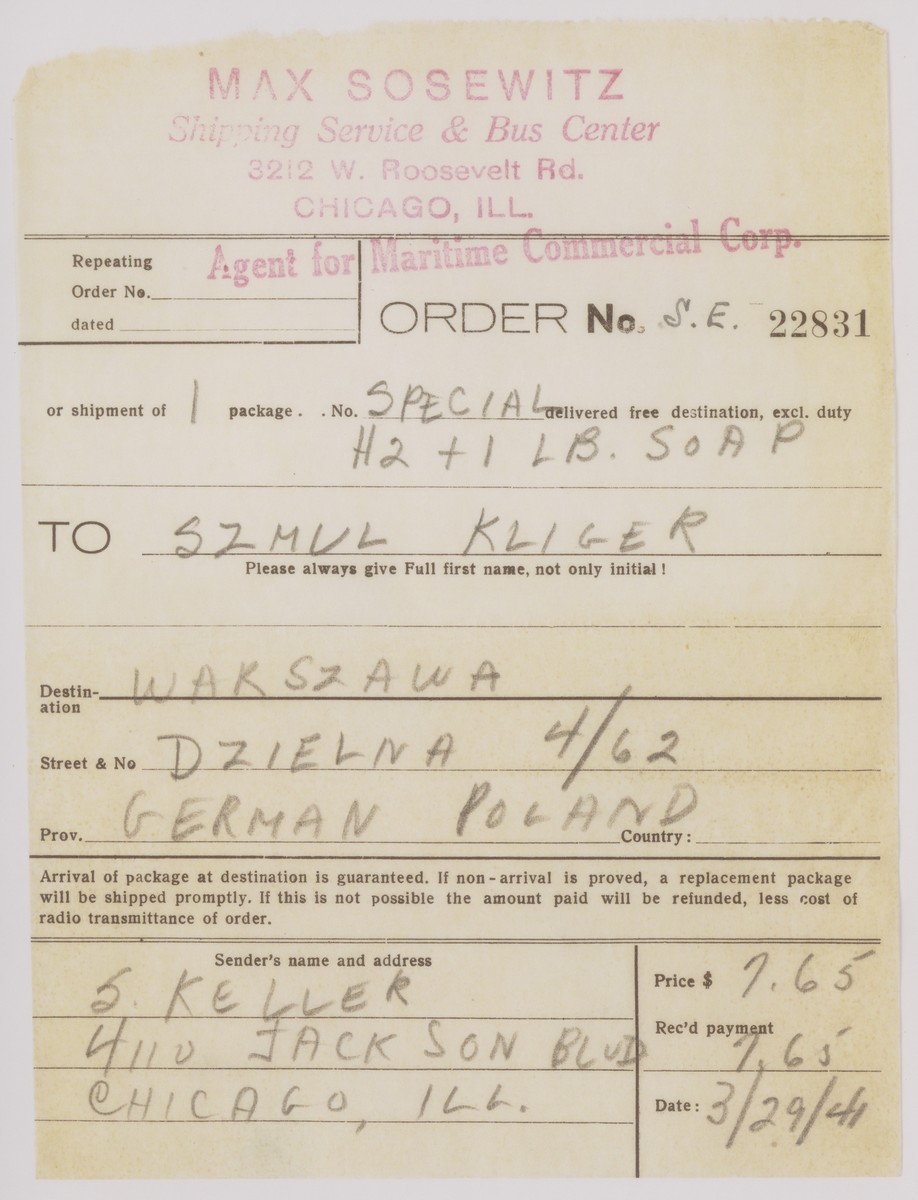 MAX SOSEWITZ
Shipping Service & Bus Center
3212 W. Roosevelt Rd.
CHICAGO, ILL.
Agent for Maritime Commercial Corp.
Repeating
Order No.
dated
ORDER No. S.E. 22831
or shipment of 1 package . . No. SPECIAL delivered free destination, excl. duty
H2 + 1 LB. SOAP
TO SZMUL KLIGER
Please always give Full first name, not only initial !
Destin-
ation WARSZAWA
Street & No DZIELNA 4/62
Prov. GERMAN POLAND Country :
Arrival of package at destination is guaranteed. If non-arrival is proved, a replacement package
will be shipped promptly. If this is not possible the amount paid will be refunded, less cost of
radio transmittance of order.
Sender's name and address
S. KELLER
4110 JACKSON BLVD
CHICAGO, ILL.
Price $ 7.65
Rec'd payment
7.65
Date : 3/29/41